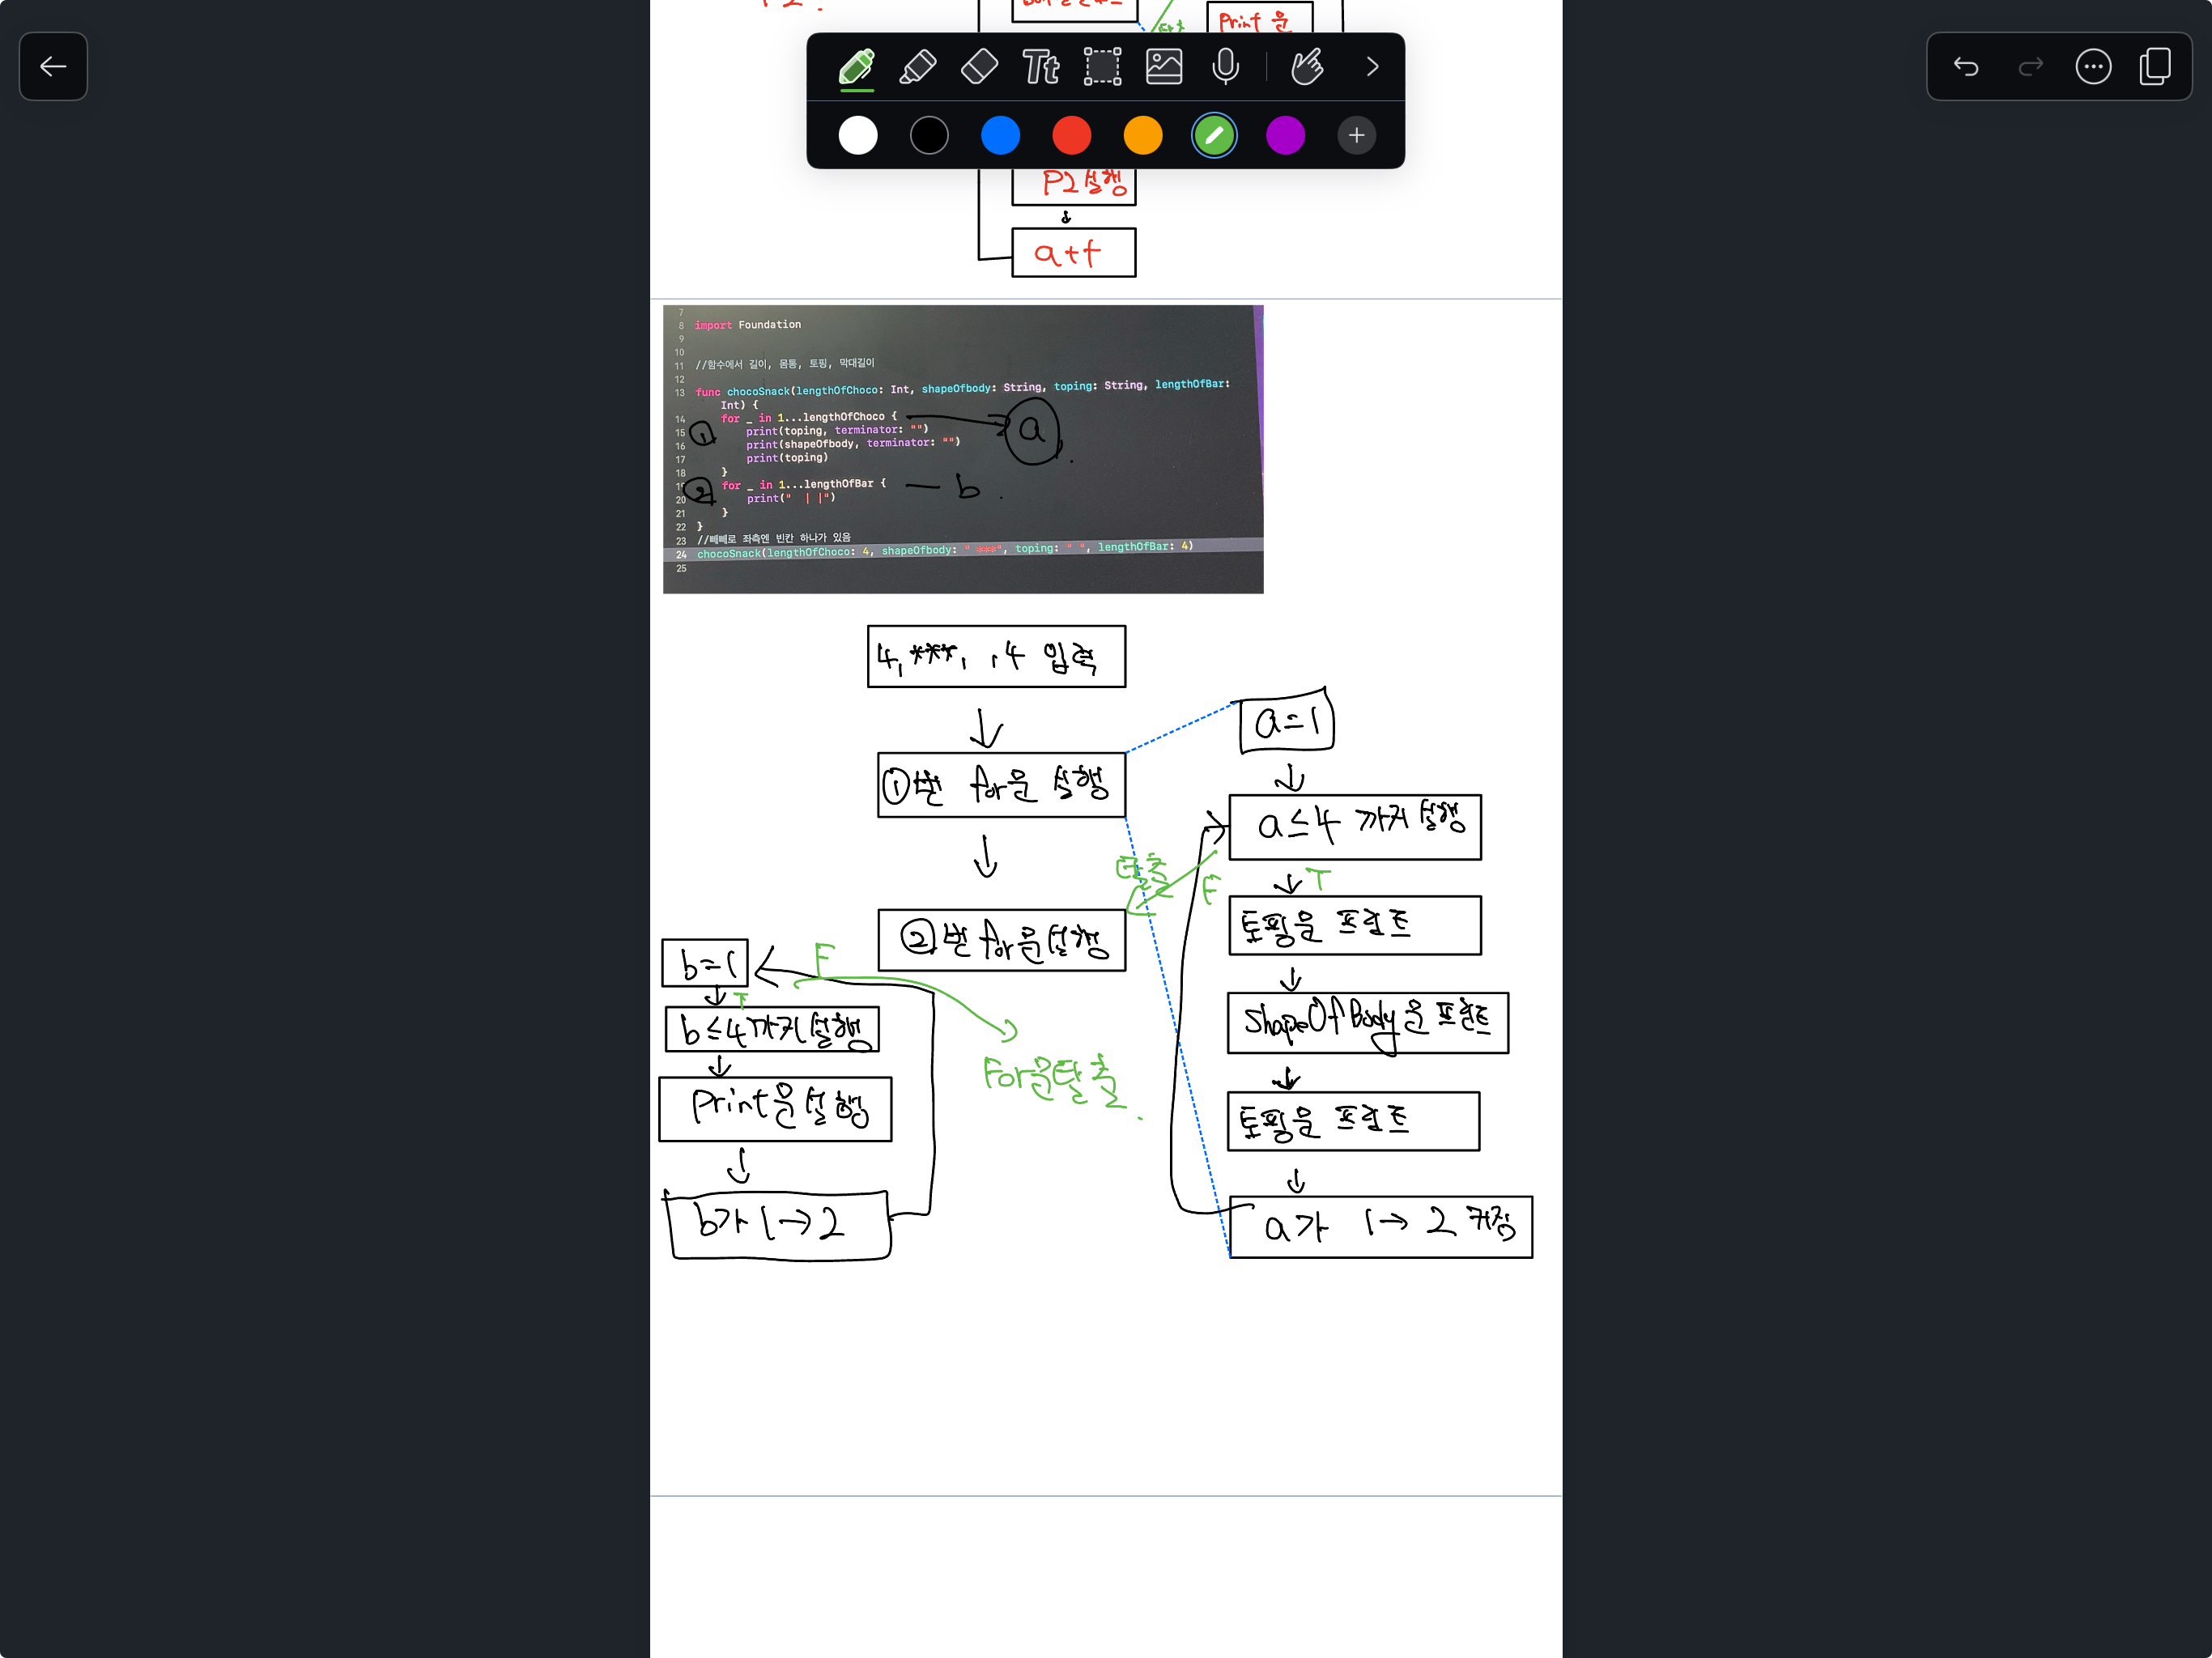 Print 문
Tt
P2실행
a+f
7
8 import Foundation
9
10
11 //함수에서 길이, 몸통, 토핑, 막대길이
12
13 func chocoSnack(lengthOfChoco: Int, shapeOfbody: String, toping: String, lengthOfBar:
Int) {
14 for _ in 1...lengthOfChoco {
15 print(toping, terminator: "")
16 print(shapeOfbody, terminator: "")
17 print(toping)
18 }
19 for _ in 1...lengthOfBar {
20 print("  | |")
21 }
22 }
23 //빼빼로 좌측엔 빈칸 하나가 있음
24 chocoSnack(lengthOfChoco: 4, shapeOfbody: " ***", toping: " ", lengthOfBar: 4)
25
①
a
②
b
4, ***, , 4 입력
①번 for문 실행
②번 for문실행
a=1
a≤4 까지 실행
탈출
F
T
토핑을 프린트
ShapeOfBody을 프린트
토핑을 프린트
a가 1→2 커짐
b=1
F
T
b≤4까지실행
Print문실행
b가 1→2
For문탈출.